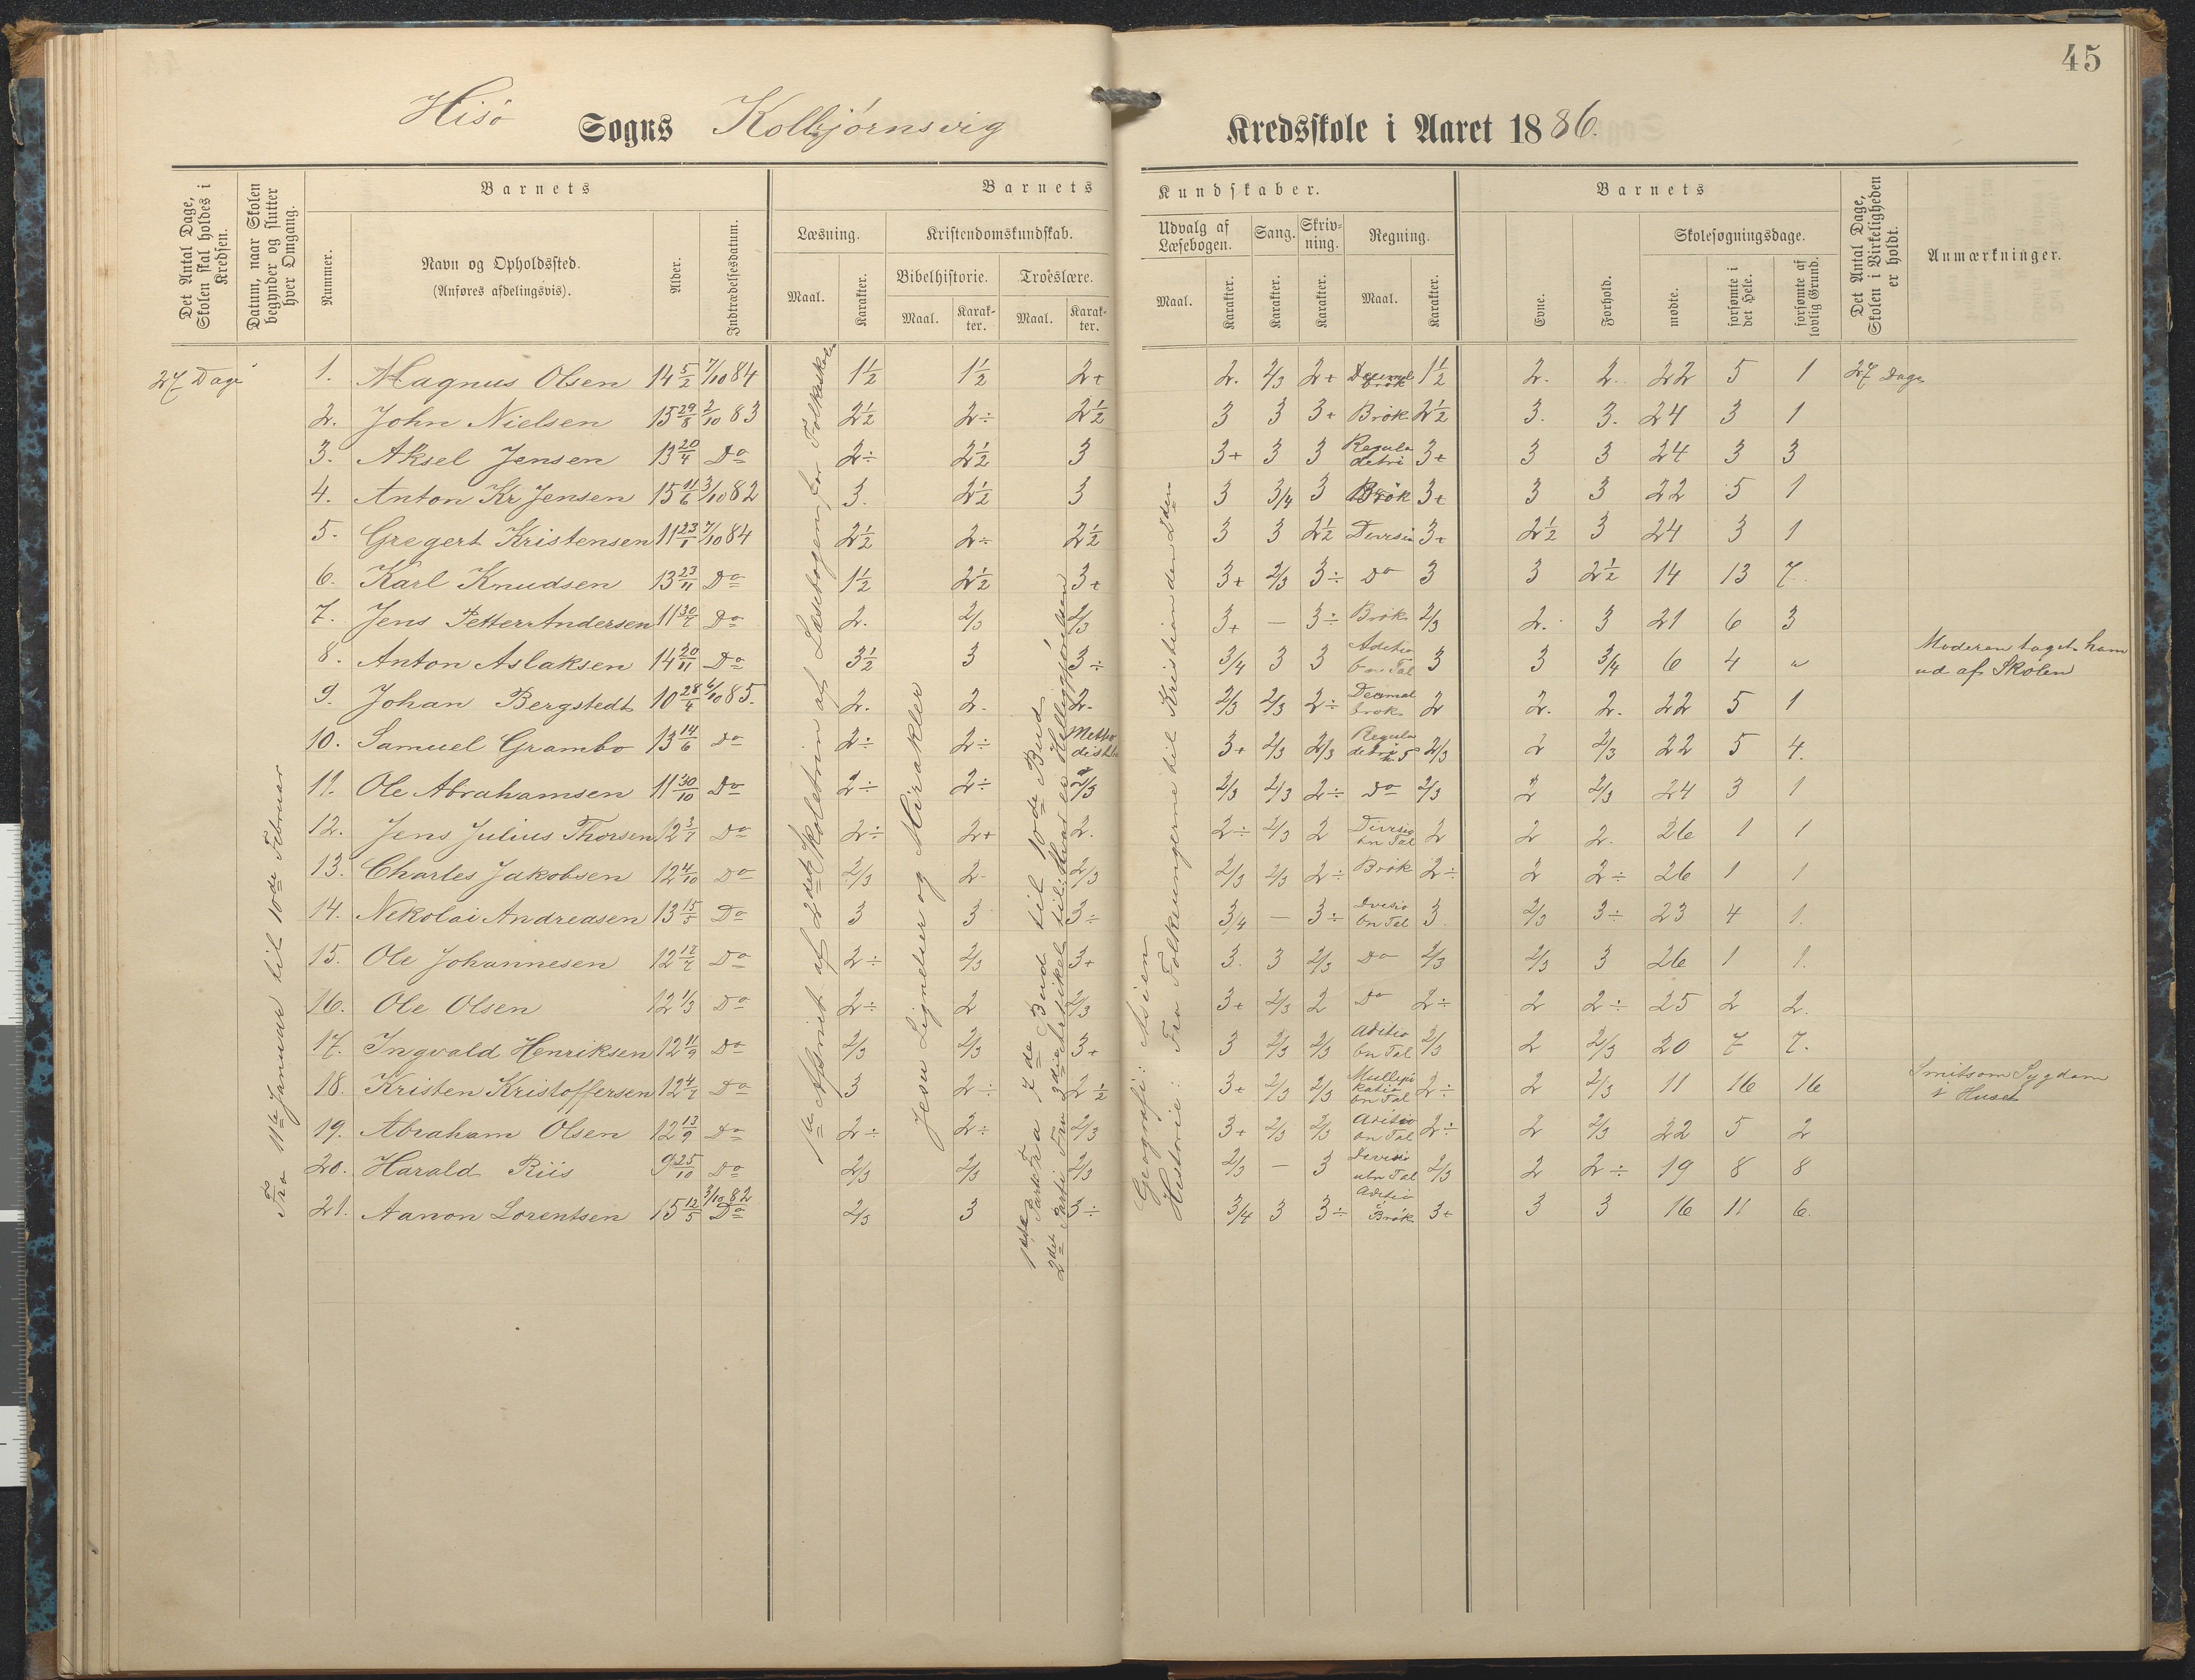 45
Hisö Sogns Kolbjörnsvig Kredsskole i Aaret 1886.
Det Antal Dage, Skolen skal holdes i Kredsen.
Datum, naar Skolen begynder og slutter hver Omgang.
Barnets
Nummer.
Navn og Opholdssted.
(Anføres afdelingsvis).
Alder.
Indtrædelsesdatum.
Barnets Kundskaber.
Læsning.
Maal.
Karakter.
Kristendomskundskab.
Bibelhistorie.
Maal.
Karakter.
Troeslære.
Maal.
Karakter.
Udvalg af Læsebogen.
Maal.
Karakter.
Sang.
Karakter.
Skrivning.
Karakter.
Regning.
Maal.
Karakter.
Barnets
Evne.
Forhold.
Skolesøgningsdage.
mødte.
forsømte i det Hele.
forsømte af lovlig Grund.
Det Antal Dage, Skolen i Virkeligheden er holdt.
Anmærkninger.
27 Dage
Fra 11te Januar til 10de Februar
1ste Afsnit af 2det Skoletrin af Læsebogen for Folkeskolen
Jesu Lignelser og Mirakler
1ste Parti Fra 7de Bud til 10de Bud
2det Parti Fra 2die Artikel til: Hvad er Helliggjörelsen
Geografi: Asien
Historie: Fra Folkungerne til Kristian den 2den
1. Magnus Olsen 14 5/2 7/10 84 1½ 1½ 2+ 2. 2/3 2+ Decimal brök 1½ 2. 2. 22 5 1 27 Dage
2. John Nielsen 15 29/8 2/10 83 2½ 2÷ 2½ 3 3 3+ Brök 2½ 3. 3. 24 3 1
3. Aksel Jensen 13 20/4 Do 2÷ 2½ 3 3+ 3 3 Regula detri 3+ 3 3 24 3 3
4. Anton Kr Jensen 15 11/6 3/10 82 3. 2½ 3 3 3/4 3 Brök 3+ 3 3 22 5 1
5. Gregert Kristensen 11 23/1 7/10 84 2½ 2÷ 2½ 3 3 2½ Divisio 3+ 2½ 3 24 3 1
6. Karl Knudsen 13 23/11 Do 1½ 2½ 3+ 3+ 2/3 3÷ Do 3 3 2½ 14 13 7.
7. Jens Petter Andersen 11 30/7 Do 2. 2/3 2/3 3+ — 3÷ Brök 2/3 2. 3 21 6 3
8. Anton Aslaksen 14 20/11 Do 3½ 3 3÷ 3/4 3 3 Aditio bn Tal 3 3 3/4 6 4 " Moderen taget ham
ud af Skolen
9. Johan Bergstedt 10 28/4 6/10 85. 2. 2. 2. 2/3 2/3 2÷ Decimal brok 2 2. 2. 22 5 1
10. Samuel Grambo 13 14/6 Do 2÷ 2÷ 3+ 2/3 2/3 Regula detri 2/3 2 2/3 22 5 4.
11. Ole Abrahamsen 11 30/10 Do 2÷ 2÷ 2/3 2/3 2/3 2÷ Do 2/3 2 2/3 24 3 1
12. Jens Julius Thorsen 12 3/7 Do 2÷ 2+ 2. 2÷ 2/3 2 Divisio bn Tal 2 2 2. 26 1 1
13. Charles Jakobsen 12 4/10 Do 2/3 2- 2/3 2/3 2/3 2÷ Brök 2÷ 2 2÷ 26 1 1
14. Nikolai Andreasen 13 15/5 Do 3 3 3÷ 3/4 — 3÷ Dvisio bn Tal 3. 2/3 3÷ 23 4 1.
15. Ole Johannesen 12 12/7 Do 2÷ 2/3 3+ 3. 3 2/3 Do 2/3 2/3 3 26 1 1.
16. Ole Olsen 12 1/3 Do 2÷ 2 2/3 3+ 2/3 2 Do 2÷ 2 2÷ 25 2 2.
17. Ingvald Henriksen 12 11/9 Do 2/3 2/3 3+ 3 2/3 2/3 Aditio bn Tal 2/3 2 2/3 20 7 7.
18. Kristen Kristoffersen 12 4/7 Do 3 2÷ 2½ 3+ 2/3 2/3 Mullipikatio bn Tal 2÷ 2 2/3 11 16 16 Smitsom Sygdom
i Huset
19. Abraham Olsen 12 13/9 Do 2÷ 2÷ 2/3 3+ 2/3 2/3 Aditio bn Tal 2÷ 2 2/3 22 5 2
20. Harald Riis 9 25/10 Do 2/3 2/3 2/3 2/3 — 3 Divisio ubn Tal 2/3 2 2÷ 19 8 8
21. Aanon Lorentsen 15 12/5 3/10 82 Do 2/3 3 3÷ 3/4 3 3÷ Aditio Brök 3+ 3 3 16 11 6.